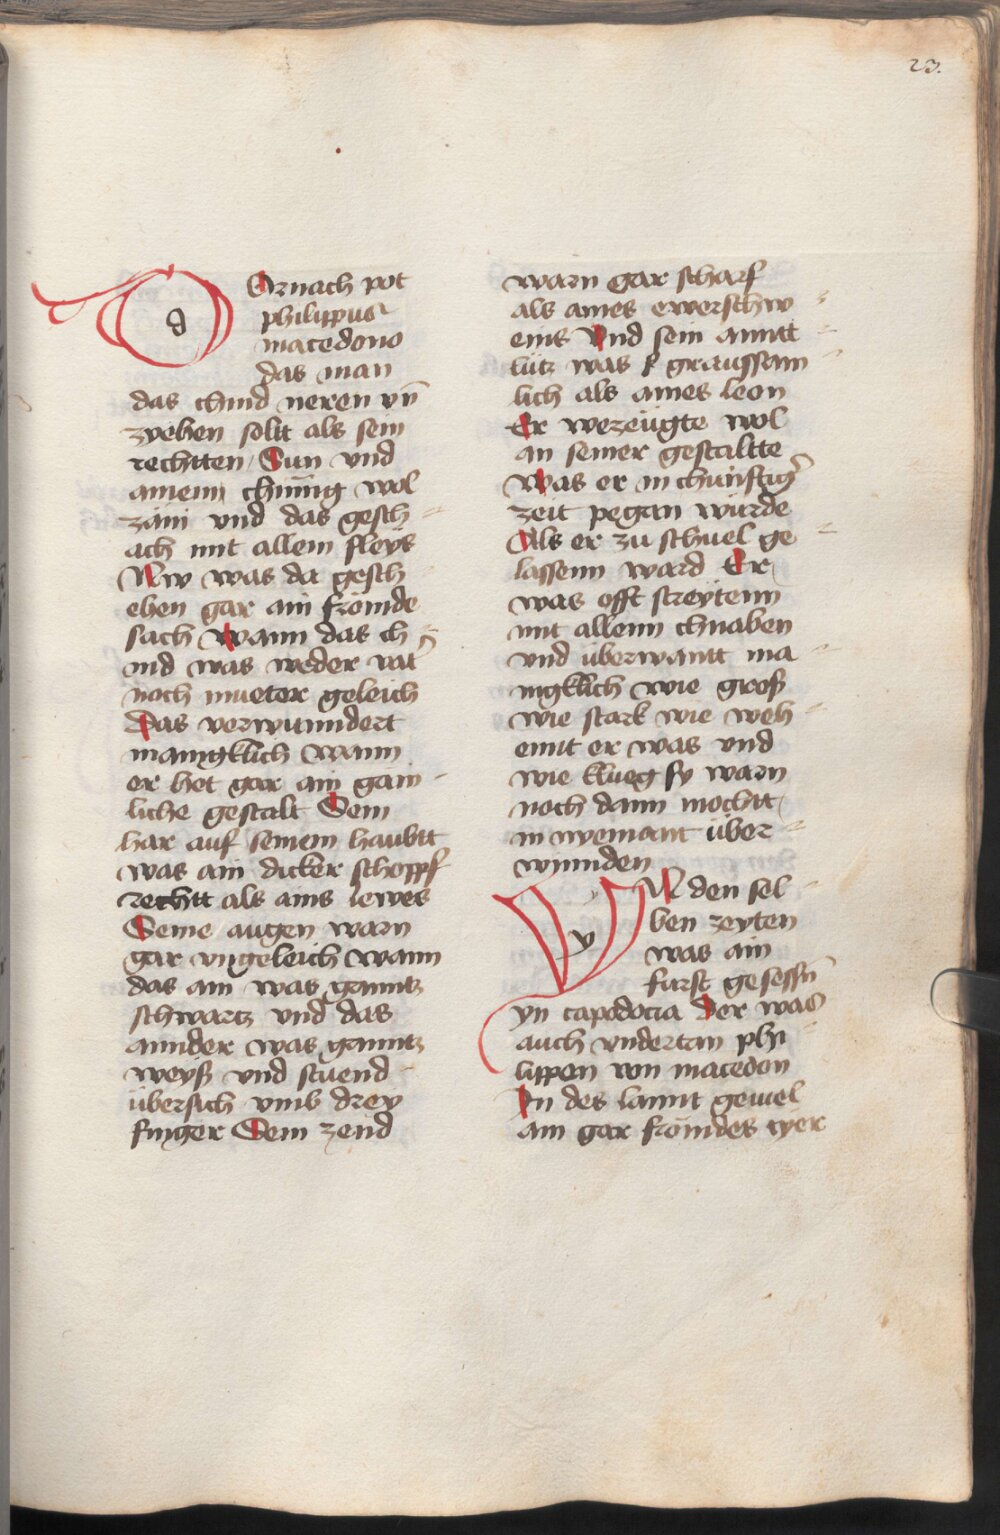 23.
DArnach pot
philippus
macedono
das man
das chind neren vn̄
zyehen solt als sein
rechtten Sun vnd
ainem chüning wol
zäm vnd das gesch
ach mit allem fleys
Nw was da gesch
ehen gar ain frömde
sach wann das ch
ind was weder vat
noch mueter geleich
Das verwunndert
manigklich wann
er het gar ain gäm
liche gestalt Sein
har auf seinem haubtt
was ain dicker schopff
rechtt als ains lewes
Seine augen warn
gar vngeleich wann
das ain was ganntz
schwartz vnd das
annder was ganntz
weyß vnd stuend
übersich vmb drey
finger Sein zend
warn gar scharf
als aines eberschw
eins Vnd sein anntt
lütz was graussam
lich als aines leon
Er wezeügte wol
an seiner gestaltte
Was er in chünftig
zeit pegan würde
Als er zu schuel ge
lassenn ward Er
was offt streytenn
mit allenn chnaben
vnd überwantt ma
nigklich wie groß
wie stark wie weh
ennt er was vnd
wie klueg sy warn
noch dann mochtt
in nyemant über
wynnden
YN den sel
ben zeyten
was ain
fürst gesessn̄
yn capadocia Der was
auch vndertan phi
lippen von macedon
In des lannt geuiel
ain gar frömdes tyer